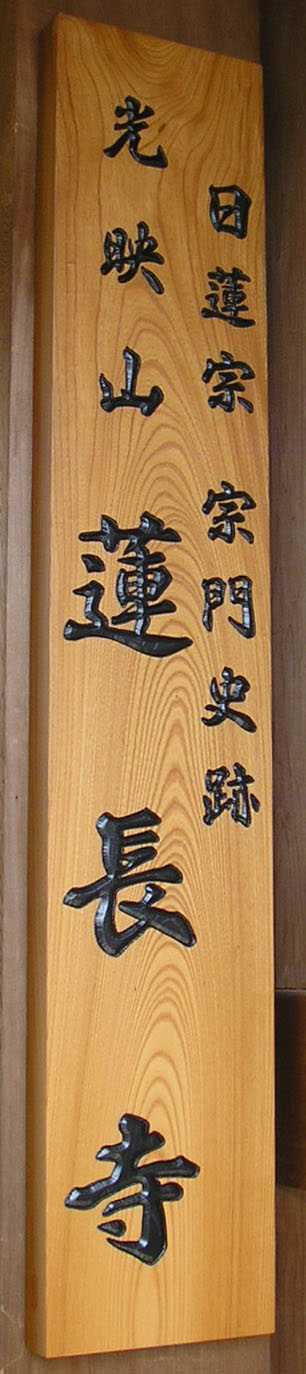 日蓮宗 宗門史跡
光映山 蓮長寺